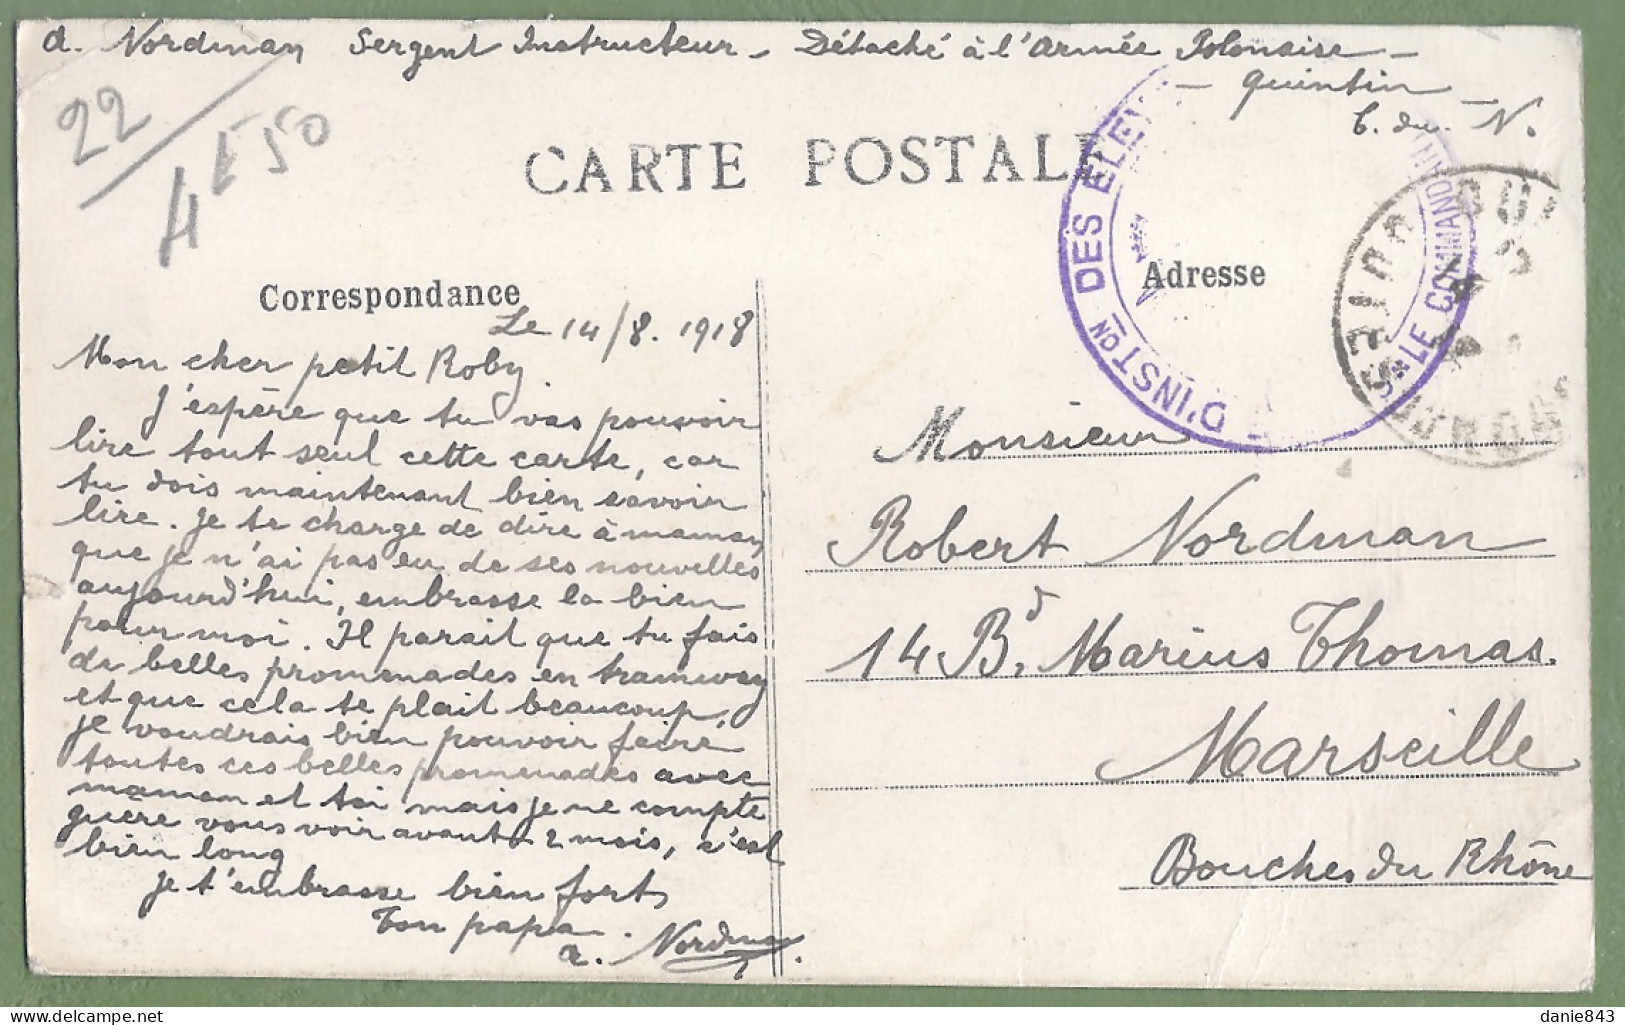 A. Nordman Sergent Instructeur - Détaché à l'Armée Polonaise -
- Quintin -
C. du. N.
22
4 E 50
CARTE POSTALE
D'INSTON DES ELEV
LE COMMANDAN
Correspondance
Adresse
Le 14/8. 1918
Mon cher petit Roby.
J'espère que tu vas pouvoir
lire tout seul cette carte, car
tu dois maintenant bien savoir
lire. Je te charge de dire à maman
que je n'ai pas eu de ses nouvelles
aujourd'hui, embrasse la bien
pour moi. Il parait que tu fais
de belles promenades en tramway
et que cela te plait beaucoup.
Je voudrais bien pouvoir faire
toutes ces belles promenades avec
maman et toi mais je ne compte
guère vous voir avant 2 mois, c'est
bien long
Je t'embrasse bien fort
Ton papa.
A. Nordman
Monsieur
Robert Nordman
14 Bd. Marius Thomas.
Marseille
Bouches du Rhône
danie843
delcampe.net